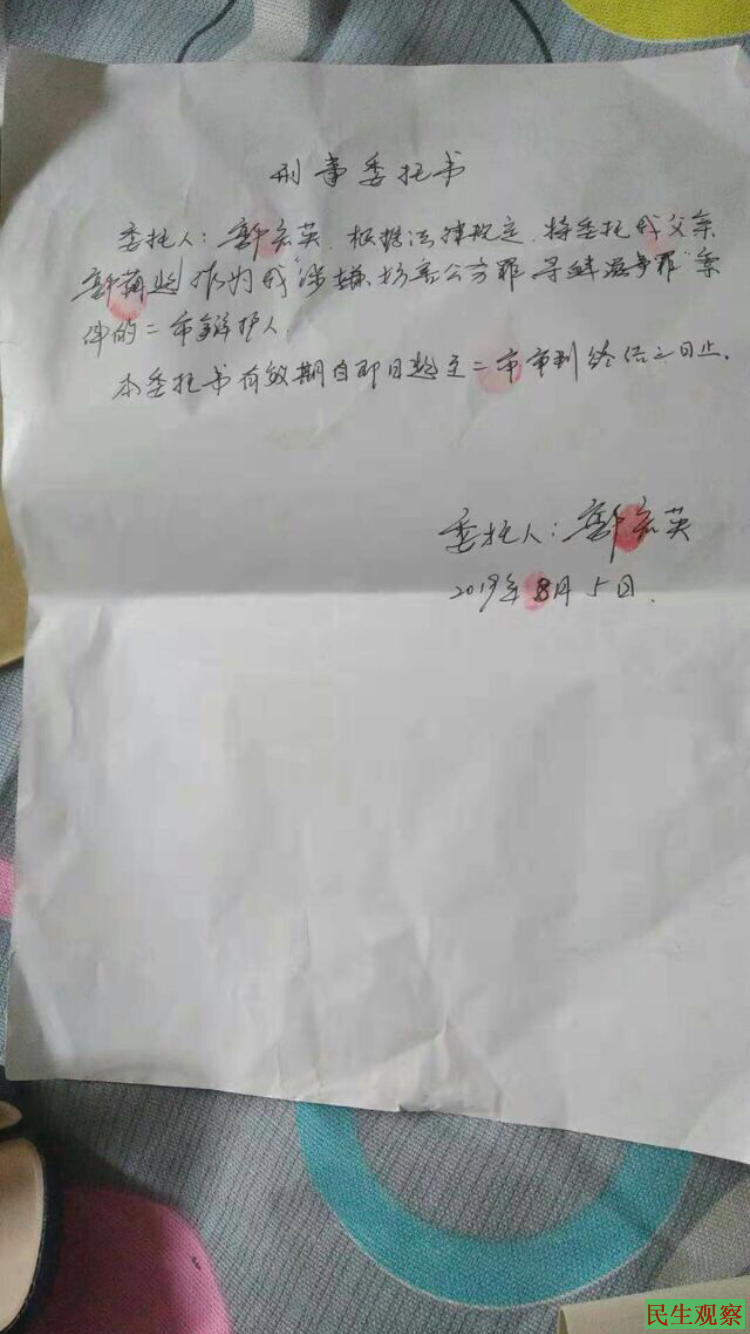 刑事委托书
委托人：郭宏英，根据法律规定，特委托我父亲
郭荫起作为我“涉嫌妨害公务罪寻衅滋事罪”案
件的二审辩护人。
本委托书有效期自即日起至二审审判终结之日止。
委托人：郭宏英
2019年8月5日.
民生观察